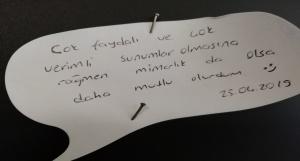 Çok faydalı ve çok
verimli sunumlar olmasına
rağmen mimarlık da olsa
daha mutlu olurdum :)
25.04.2019